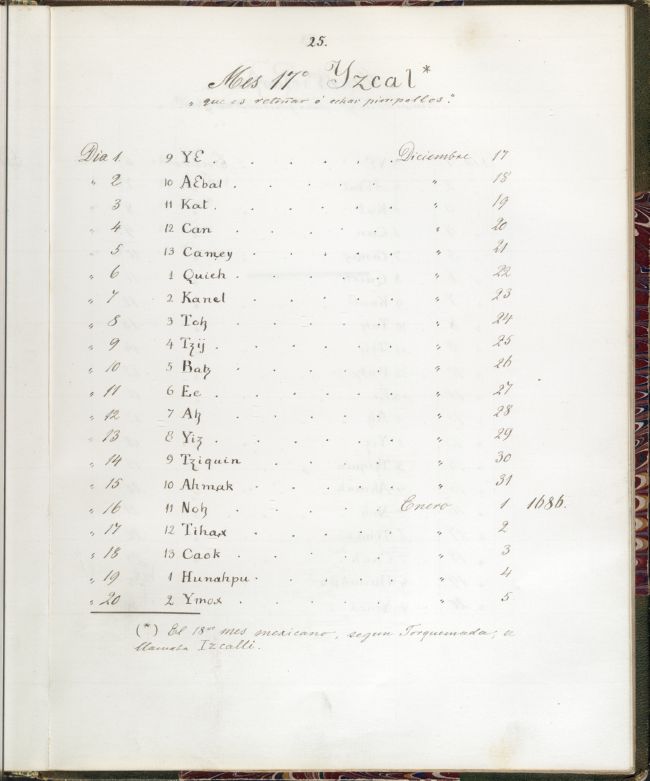 25.
Mes 17º Yzcal*
"que es retoñar ó echar pimpollos."
Dia 1. 9 YE . . . . . Diciembre 17
" 2 10 AEbal . . . . " 18
" 3 11 Kat . . . . . " 19
" 4 12 Can . . . . " 20
" 5 13 Camey . . . . " 21
" 6 1 Quieh . . . . " 22
" 7 2 Kanel . . . . " 23
" 8 3 Toh . . . . " 24
" 9 4 Tzij . . . . . " 25
" 10 5 Batz . . . . " 26
" 11 6 Ee . . . . " 27
" 12 7 Ah . . . . " 28
" 13 8 Yiz . . . . . " 29
" 14 9 Tziquin . . . " 30
" 15 10 Ahmak . . . . " 31
" 16 11 Noh . . . . Enero 1 1686.
" 17 12 Tihax . . . . " 2
" 18 13 Caok . . . . " 3
" 19 1 Hunahpu . . . . " 4
" 20 2 Ymox . . . . " 5
(*) El 18º mes mexicano, segun Torquemada, se
llamaba Izcalli.